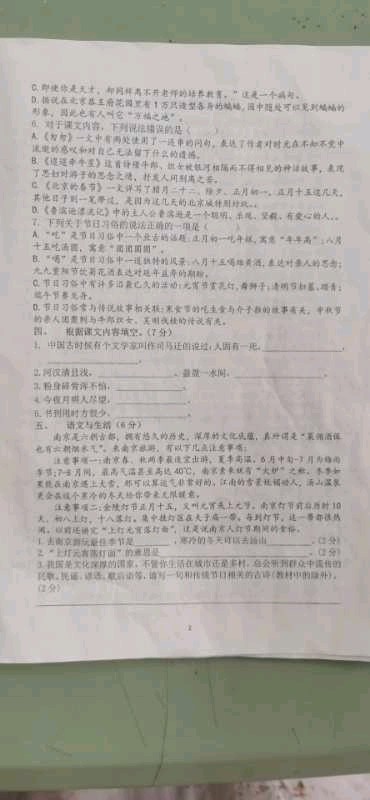 C.即使你是天才,却同样离不开老师的培养教育。”这是一个病句。
D.据说在北京恭王府花园里有1万只造型各异的蝙蝠,园中随处可以见到蝙蝠的
形象,因此也有人叫它“万福之地”。
6. 对于课文内容,下列说法错误的是( )
A.《匆匆》一文中有两处使用了一连串的问句,表达了作者对时光在不知不觉中
流逝的感叹和对自己无法留下什么的遗憾。
B.《迢迢牵牛星》这首诗借牛郎、织女被银河相隔而不得相见的神话故事,表现
了思妇对游子的思念之情,抒发人间别离之苦。
C.《北京的春节》一文详写了腊月二十三、除夕、正月初一、正月十五这几天,
其他日子则一笔带过,是因为这几天的北京城特别好玩。
D.《鲁滨逊漂流记》中的主人公鲁滨逊是一个聪明、乐观、坚毅、有爱心的人。
7. 下列关于节日习俗的说法正确的一项是( )
A.“吃”是节日习俗中一个业古的话题:正月初一吃年糕,寓意“年年高”;八月
十五吃汤圆,寓意“团团圆圆”。
B.“喝”是节日习俗中一道独特的风景:八月十五喝雄黄酒,表达对亲人的思念;
九九重阳节饮菊花酒表达对延年益寿的期盼。
C.节日习俗中有许多沿袭已久的活动:元宵节赏花灯、舞狮子;清明节扫墓、踏青;
端午节赛龙舟。
D.节日习俗常与传说故事相关联:寒食节的吃生食与介子推的故事有关,中秋节
的亲人团聚则与牛郎织女、吴刚伐桂的传说有关。
四、 根据课文内容填空。(7分)
1. 中国古时候有个文学家叫作司马迁的说过:人固有一死,
2.河汉清且浅, 。盈盈一水间,
3.粉身碎骨浑不怕,
4.今夜月明人尽望,
6.书到用时方恨少,
五、 语文与生活(6分)
南京是六朝古都,拥有悠久的历史,深厚的文化底蕴,真所谓是“菜佣酒保
也有六朝烟水气”。来南京旅游,有以下几点注意事项:
注意事项一:南京春、秋两季最适宜出游,夏季高温。6月中旬-7月为梅雨
季节;7-8月间,最高气温甚至高达40℃,南京素来就有“火炉”之称。冬季如
果能在南京遇上大雪,那可以算运气非常好的。江南的雪景秾媚动人,汤山温泉
更会在这个寒冷的冬天给你带来无限暖意。
注意事项二:金陵灯节正月十五,又叫元宵或上元节。南京灯节前后历时10
天,初八上灯,十八落灯。集中挂灯区在夫子庙一带,每到灯节,这一带都很热
闹,以前还讲究“上灯元宵落灯面”,这是说南京人灯节期间的食俗。
1. 去南京游玩最佳季节是 ,寒冷的冬天可以去汤山 。(2分)
2.“上灯元宵落灯面”的意思是 。(2分)
3.我国是文化深厚的国家,不管你生活在城市还是乡村,总会听到群众中流传的
民歌、民谣、谚语、歇后语等,请写一句和传统节日相关的古诗(教材中的除外)。
(2分)
2